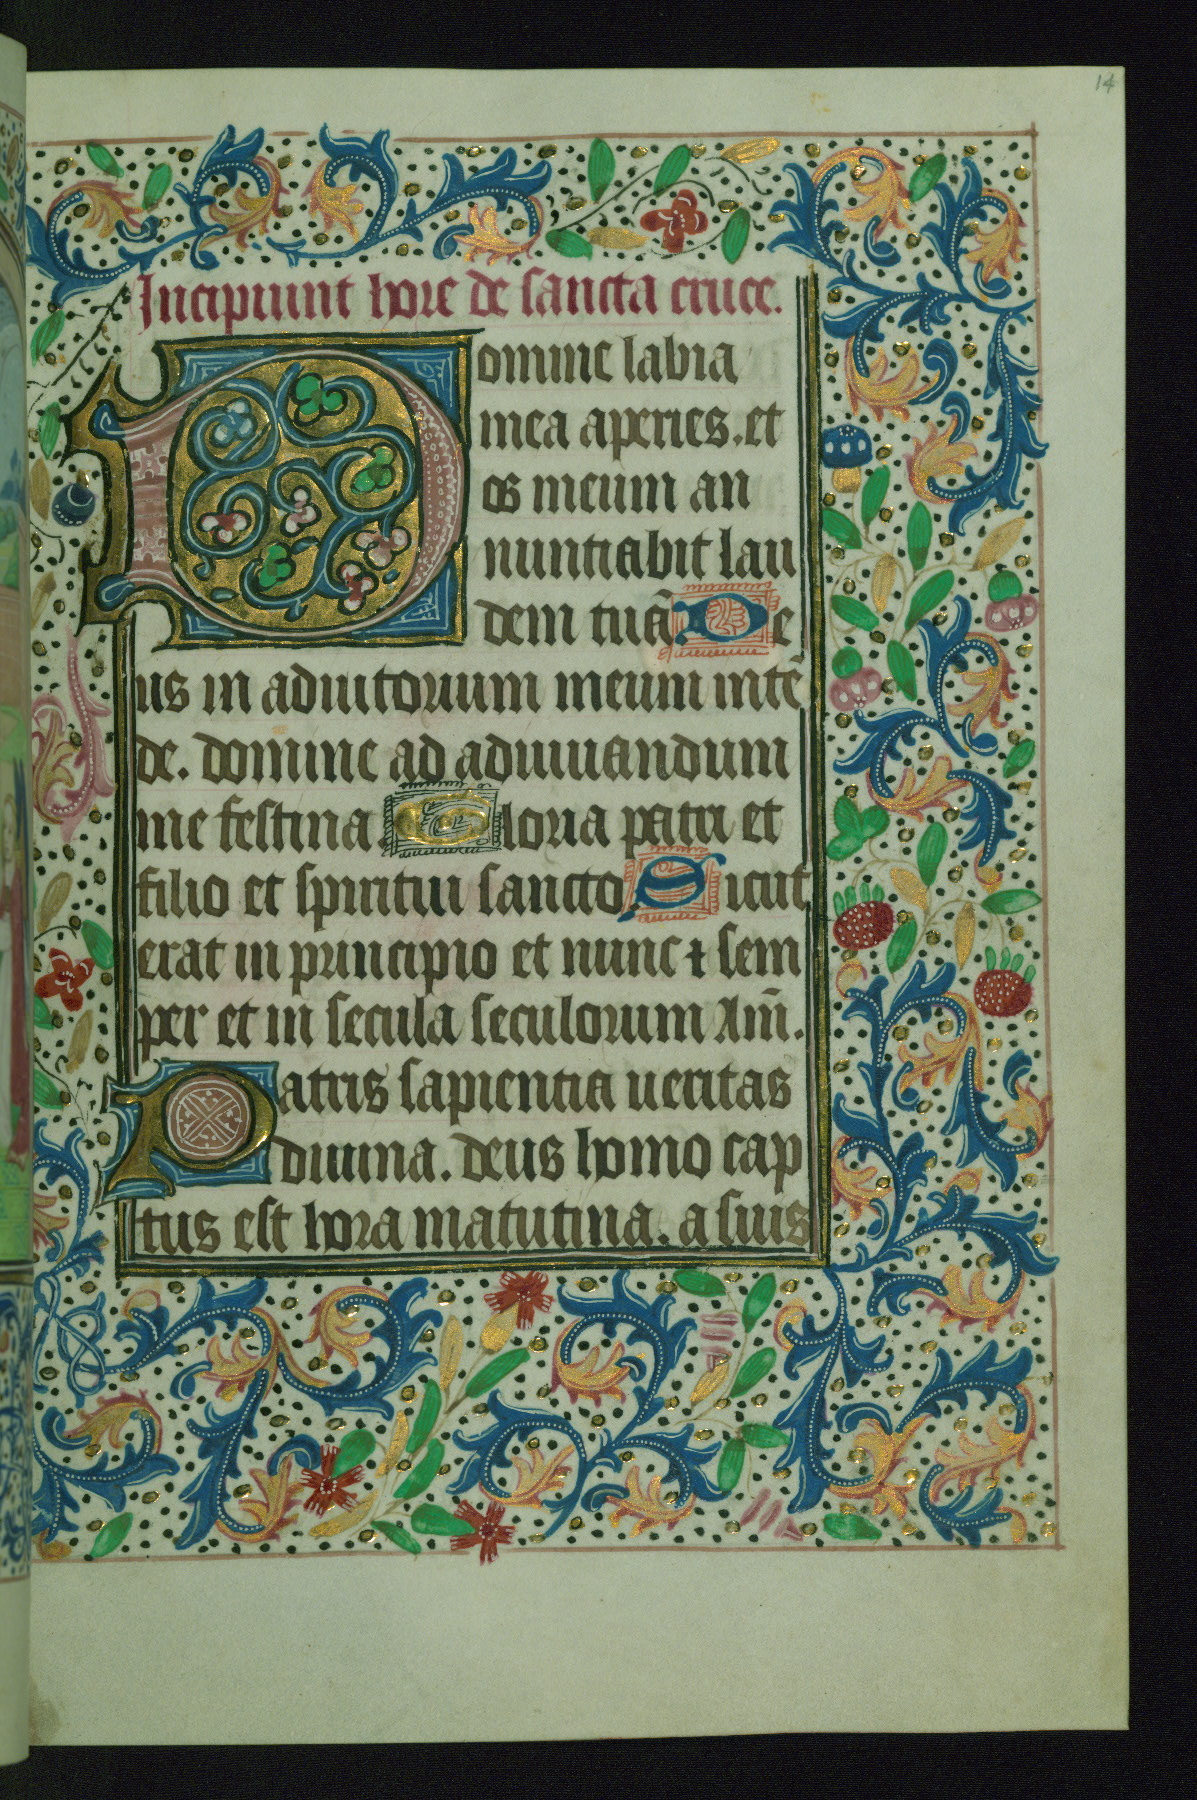 14
Incipiunt hore de sancta cruce.
Domine labia
mea aperies. et
os meum an
nuntiabit lau
dem tuā. De
us in adiutorium meum intē
de. domine ad adiuuandum
me festina. Gloria patri et
filio et spiritui sancto. Sicut
erat in principio et nunc ⁊ sem
per et in secula seculorum Am̄.
Patris sapientia ueritas
diuina. deus homo cap
tus est hora matutina. a suis